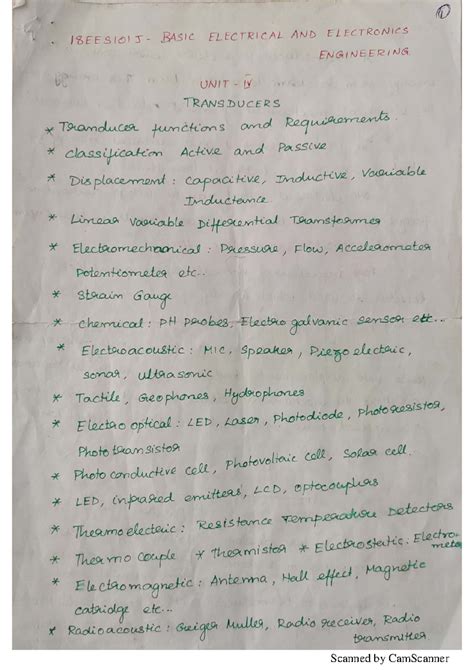 1
18EES101J - BASIC ELECTRICAL AND ELECTRONICS
ENGINEERING
UNIT - IV
TRANSDUCERS
* Tranducer functions and Requirements.
* classification Active and Passive
* Displacement : Capacitive, Inductive, Variable
Inductance
* Linear Variable Differential Transformer
* Electromechanical : Pressure, Flow, Accelerometer
Potentiometer etc..
* Strain Gauge
* chemical : PH probes, Electro galvanic sensor etc...
* Electroacoustic : Mic, Speaker, Piezo electric,
sonar, ultrasonic
* Tactile, Geophones, Hydrophones
* Electro optical : LED, Laser, Photodiode, Photoresistor,
Photo transistor
* Photo conductive cell, Photovoltaic cell, Solar cell.
* LED, infrared emitters, LCD, optocouplers
* Thermo electric : Resistance Temperature Detectors
* Thermo Couple * Thermistor * Electrostatic : Electro-
meter
* Electromagnetic : Antenna, Hall effect, Magnetic
catridge etc...
* Radioacoustic : Geiger Muller, Radio receiver, Radio
transmitter
Scanned by CamScanner